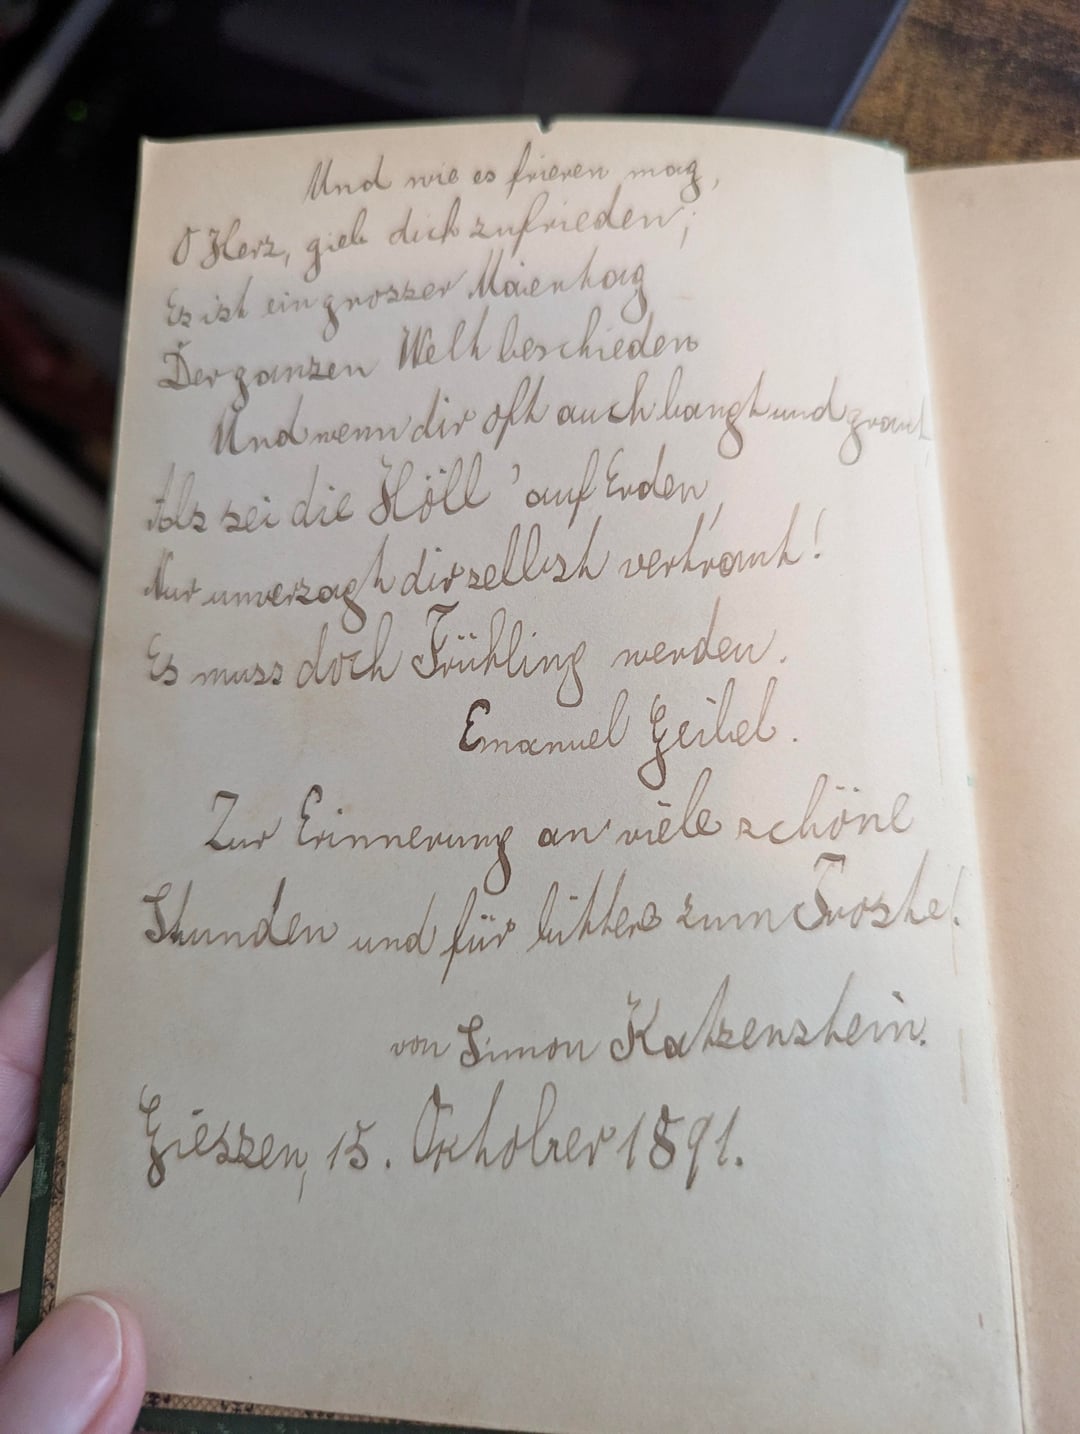 Und wie es frieren mag,
O Herz, gieb dich zufrieden;
Es ist ein grosser Maientag
Der ganzen Welt beschieden
Und wenn dir oft auch bangt und graut,
Als sei die Höll' auf Erden,
Nur unverzagt dir selbst vertraut!
Es muss doch Frühling werden.
Emanuel Geibel.
Zur Erinnerung an viele schöne
Stunden und für bittere zum Troste!
von Simon Katzenstein.
Gieszen, 15. Oktober 1891.